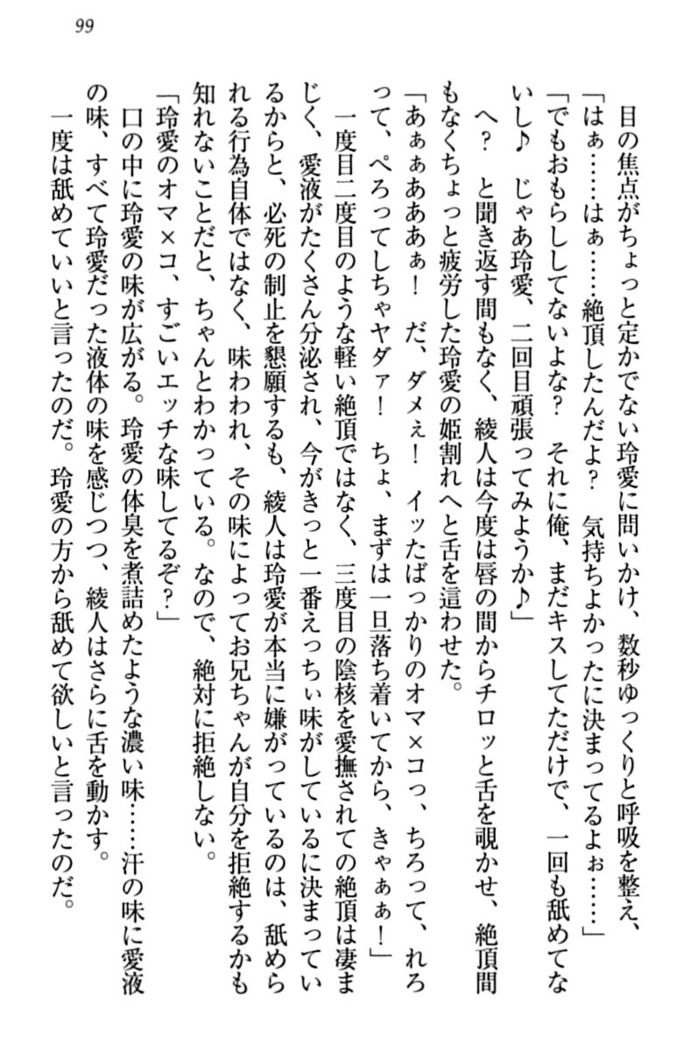 99
目の焦点がちょっと定かでない玲愛に問いかけ、数秒ゆっくりと呼吸を整え、
「はぁ……はぁ……絶頂したんだよ？　気持ちよかったに決まってるよぉ……」
「でもおもらししてないよな？　それに俺、まだキスしてただけで、一回も舐めてな
いし♪　じゃあ玲愛、二回目頑張ってみようか♪」
へ？　と聞き返す間もなく、綾人は今度は唇の間からチロッと舌を覗かせ、絶頂間
もなくちょっと疲労した玲愛の姫割れへと舌を這わせた。
「あぁぁあああぁ！　だ、ダメぇ！　イッたばっかりのオマ×コっ、ちろって、れろ
って、ぺろってしちゃヤダァ！　ちょ、まずは一旦落ち着いてから、きゃぁぁ！」
一度目二度目のような軽い絶頂ではなく、三度目の陰核を愛撫されての絶頂は凄ま
じく、愛液がたくさん分泌され、今がきっと一番えっちぃ味がしているに決まってい
るからと、必死の制止を懇願するも、綾人は玲愛が本当に嫌がっているのは、舐めら
れる行為自体ではなく、味わわれ、その味によってお兄ちゃんが自分を拒絶するかも
知れないことだと、ちゃんとわかっている。なので、絶対に拒絶しない。
「玲愛のオマ×コ、すごいエッチな味してるぞ？」
口の中に玲愛の味が広がる。玲愛の体臭を煮詰めたような濃い味……汗の味に愛液
の味、すべて玲愛だった液体の味を感じつつ、綾人はさらに舌を動かす。
一度は舐めていいと言ったのだ。玲愛の方から舐めて欲しいと言ったのだ。